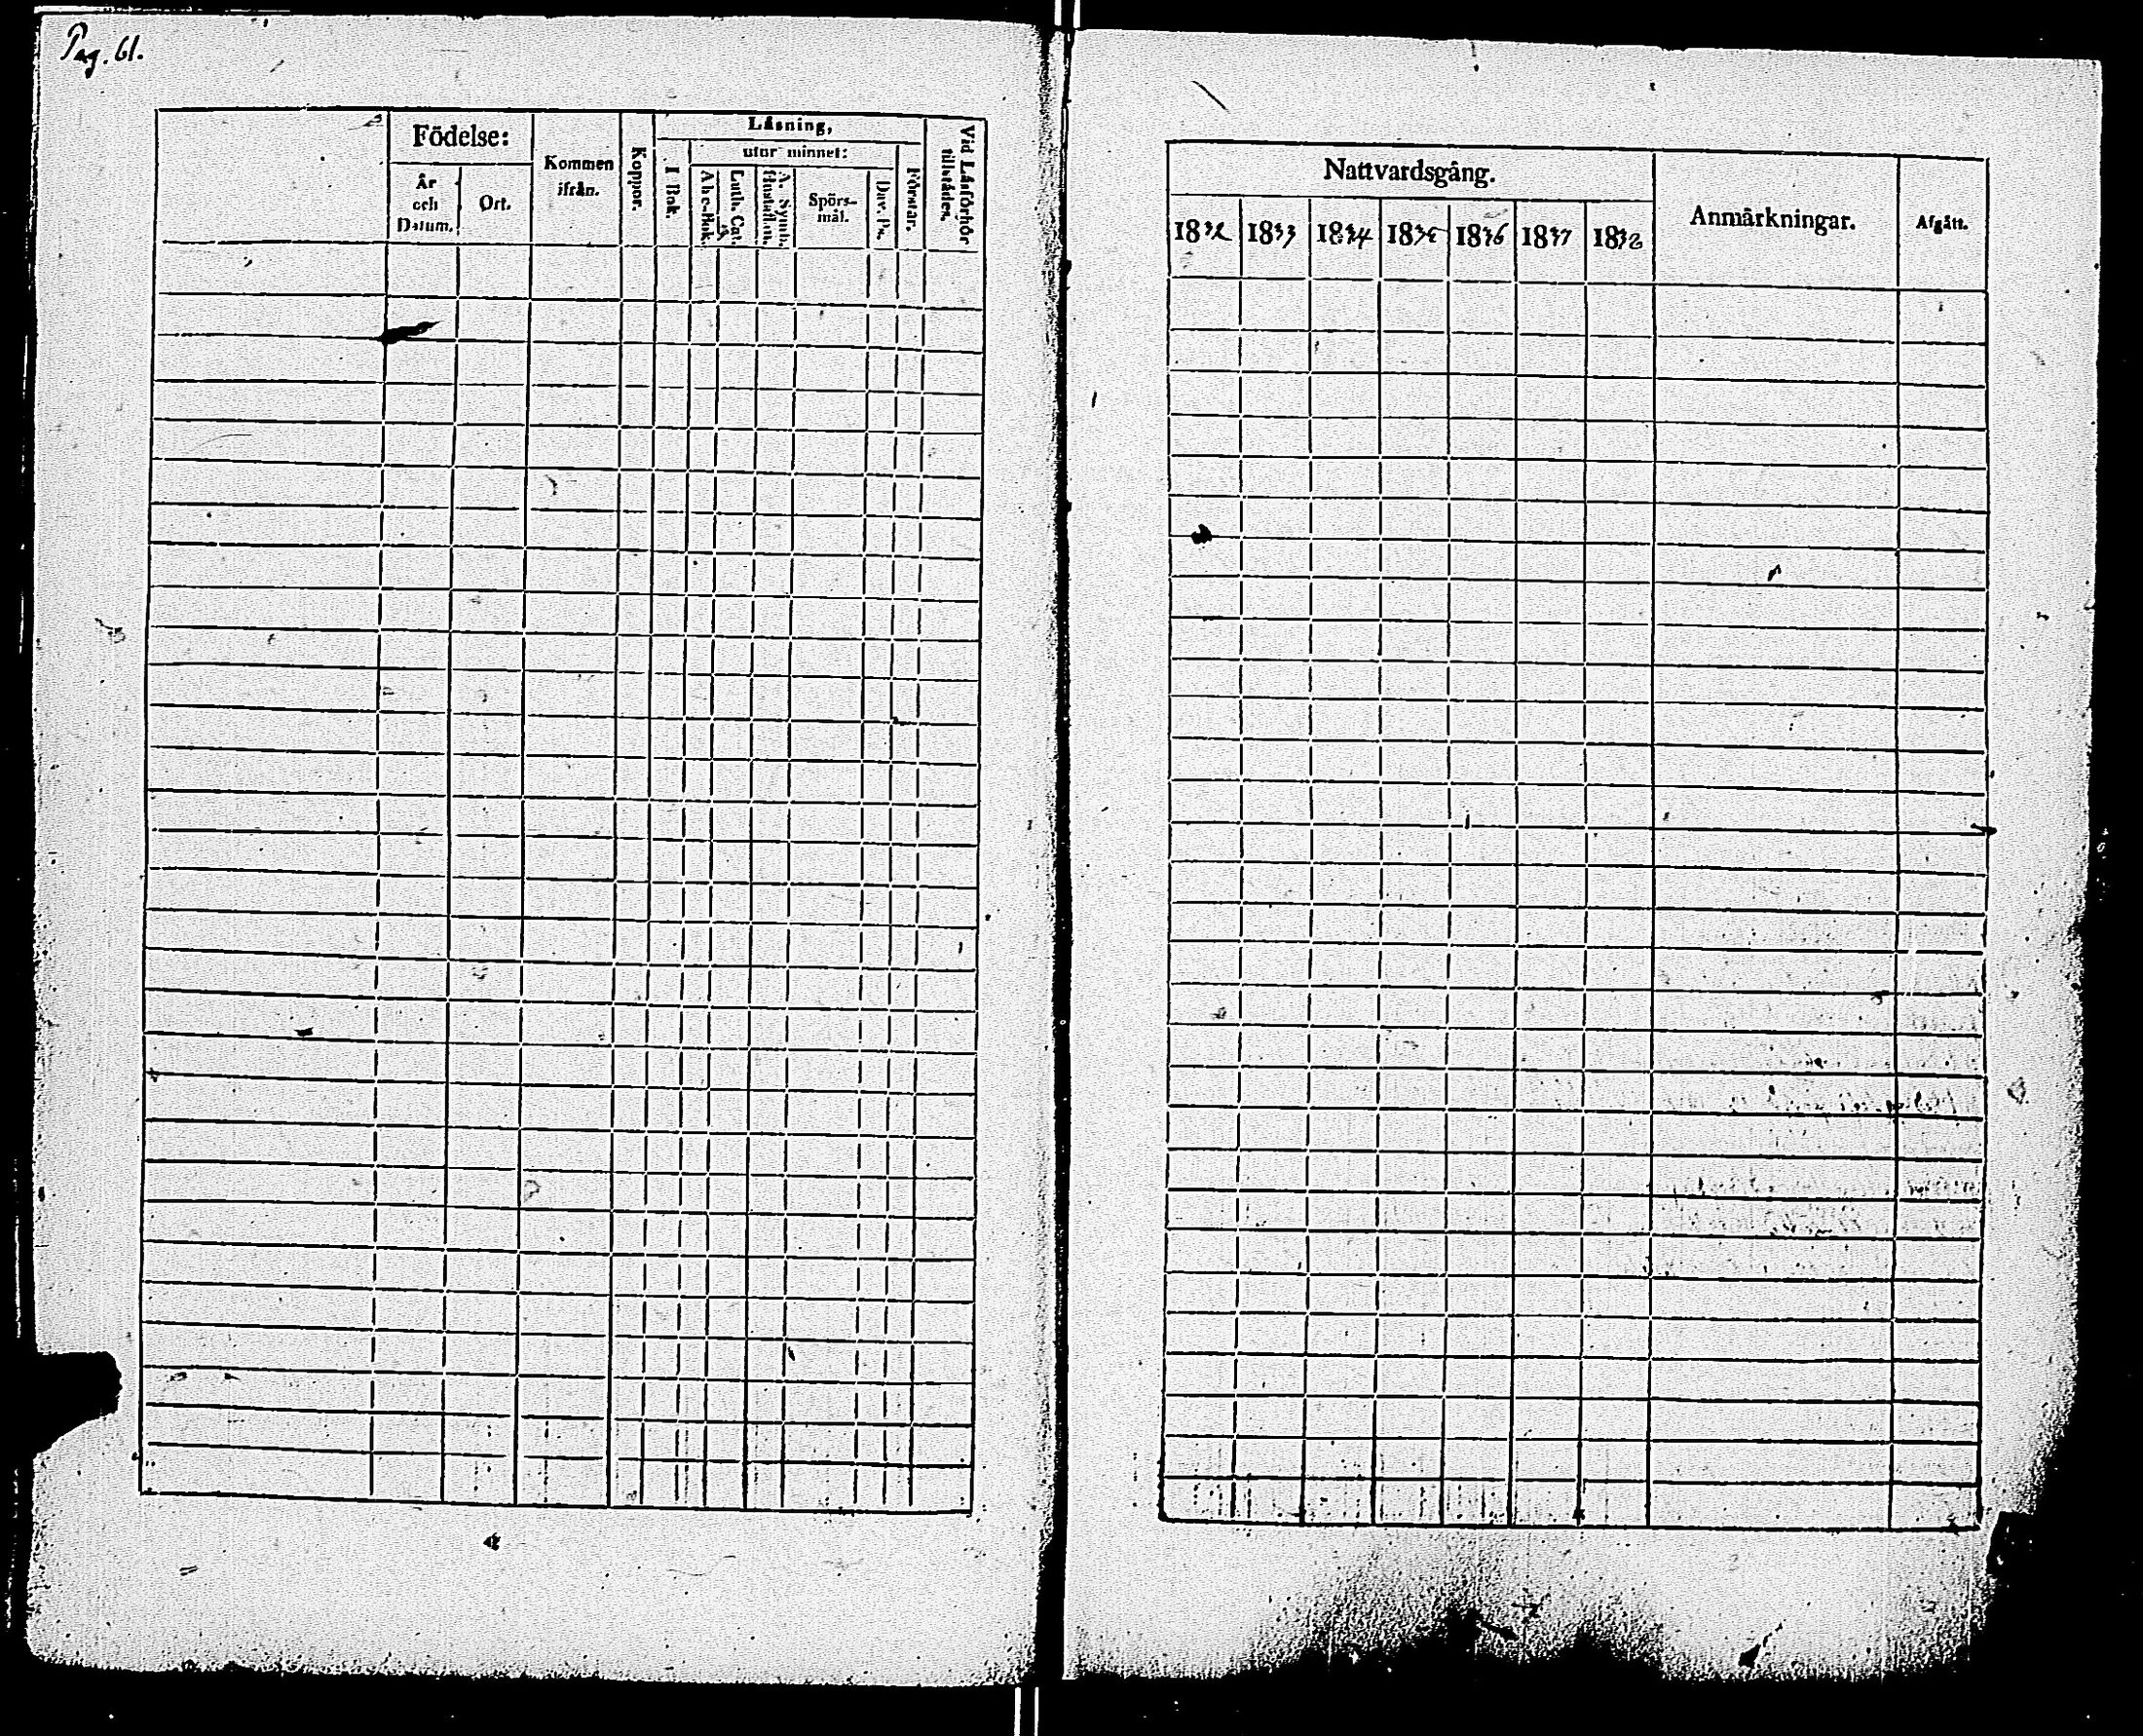 Pag. 61.
Födelse:
År
och
Datum.
Ort.
Kommen
ifrån.
Koppor.
Läsning,
I Bok.
utur minnet:
Abc-Bok.
Luth. Cat.
A. Symb.
Hustaflan.
Spörs-
mål.
Dav. Ps.
Förstår.
Vid Läsförhör
tillstädes.
Nattvardsgång.
1832 1833 1834 1835 1836 1837 1838
Anmärkningar.
Afgått.